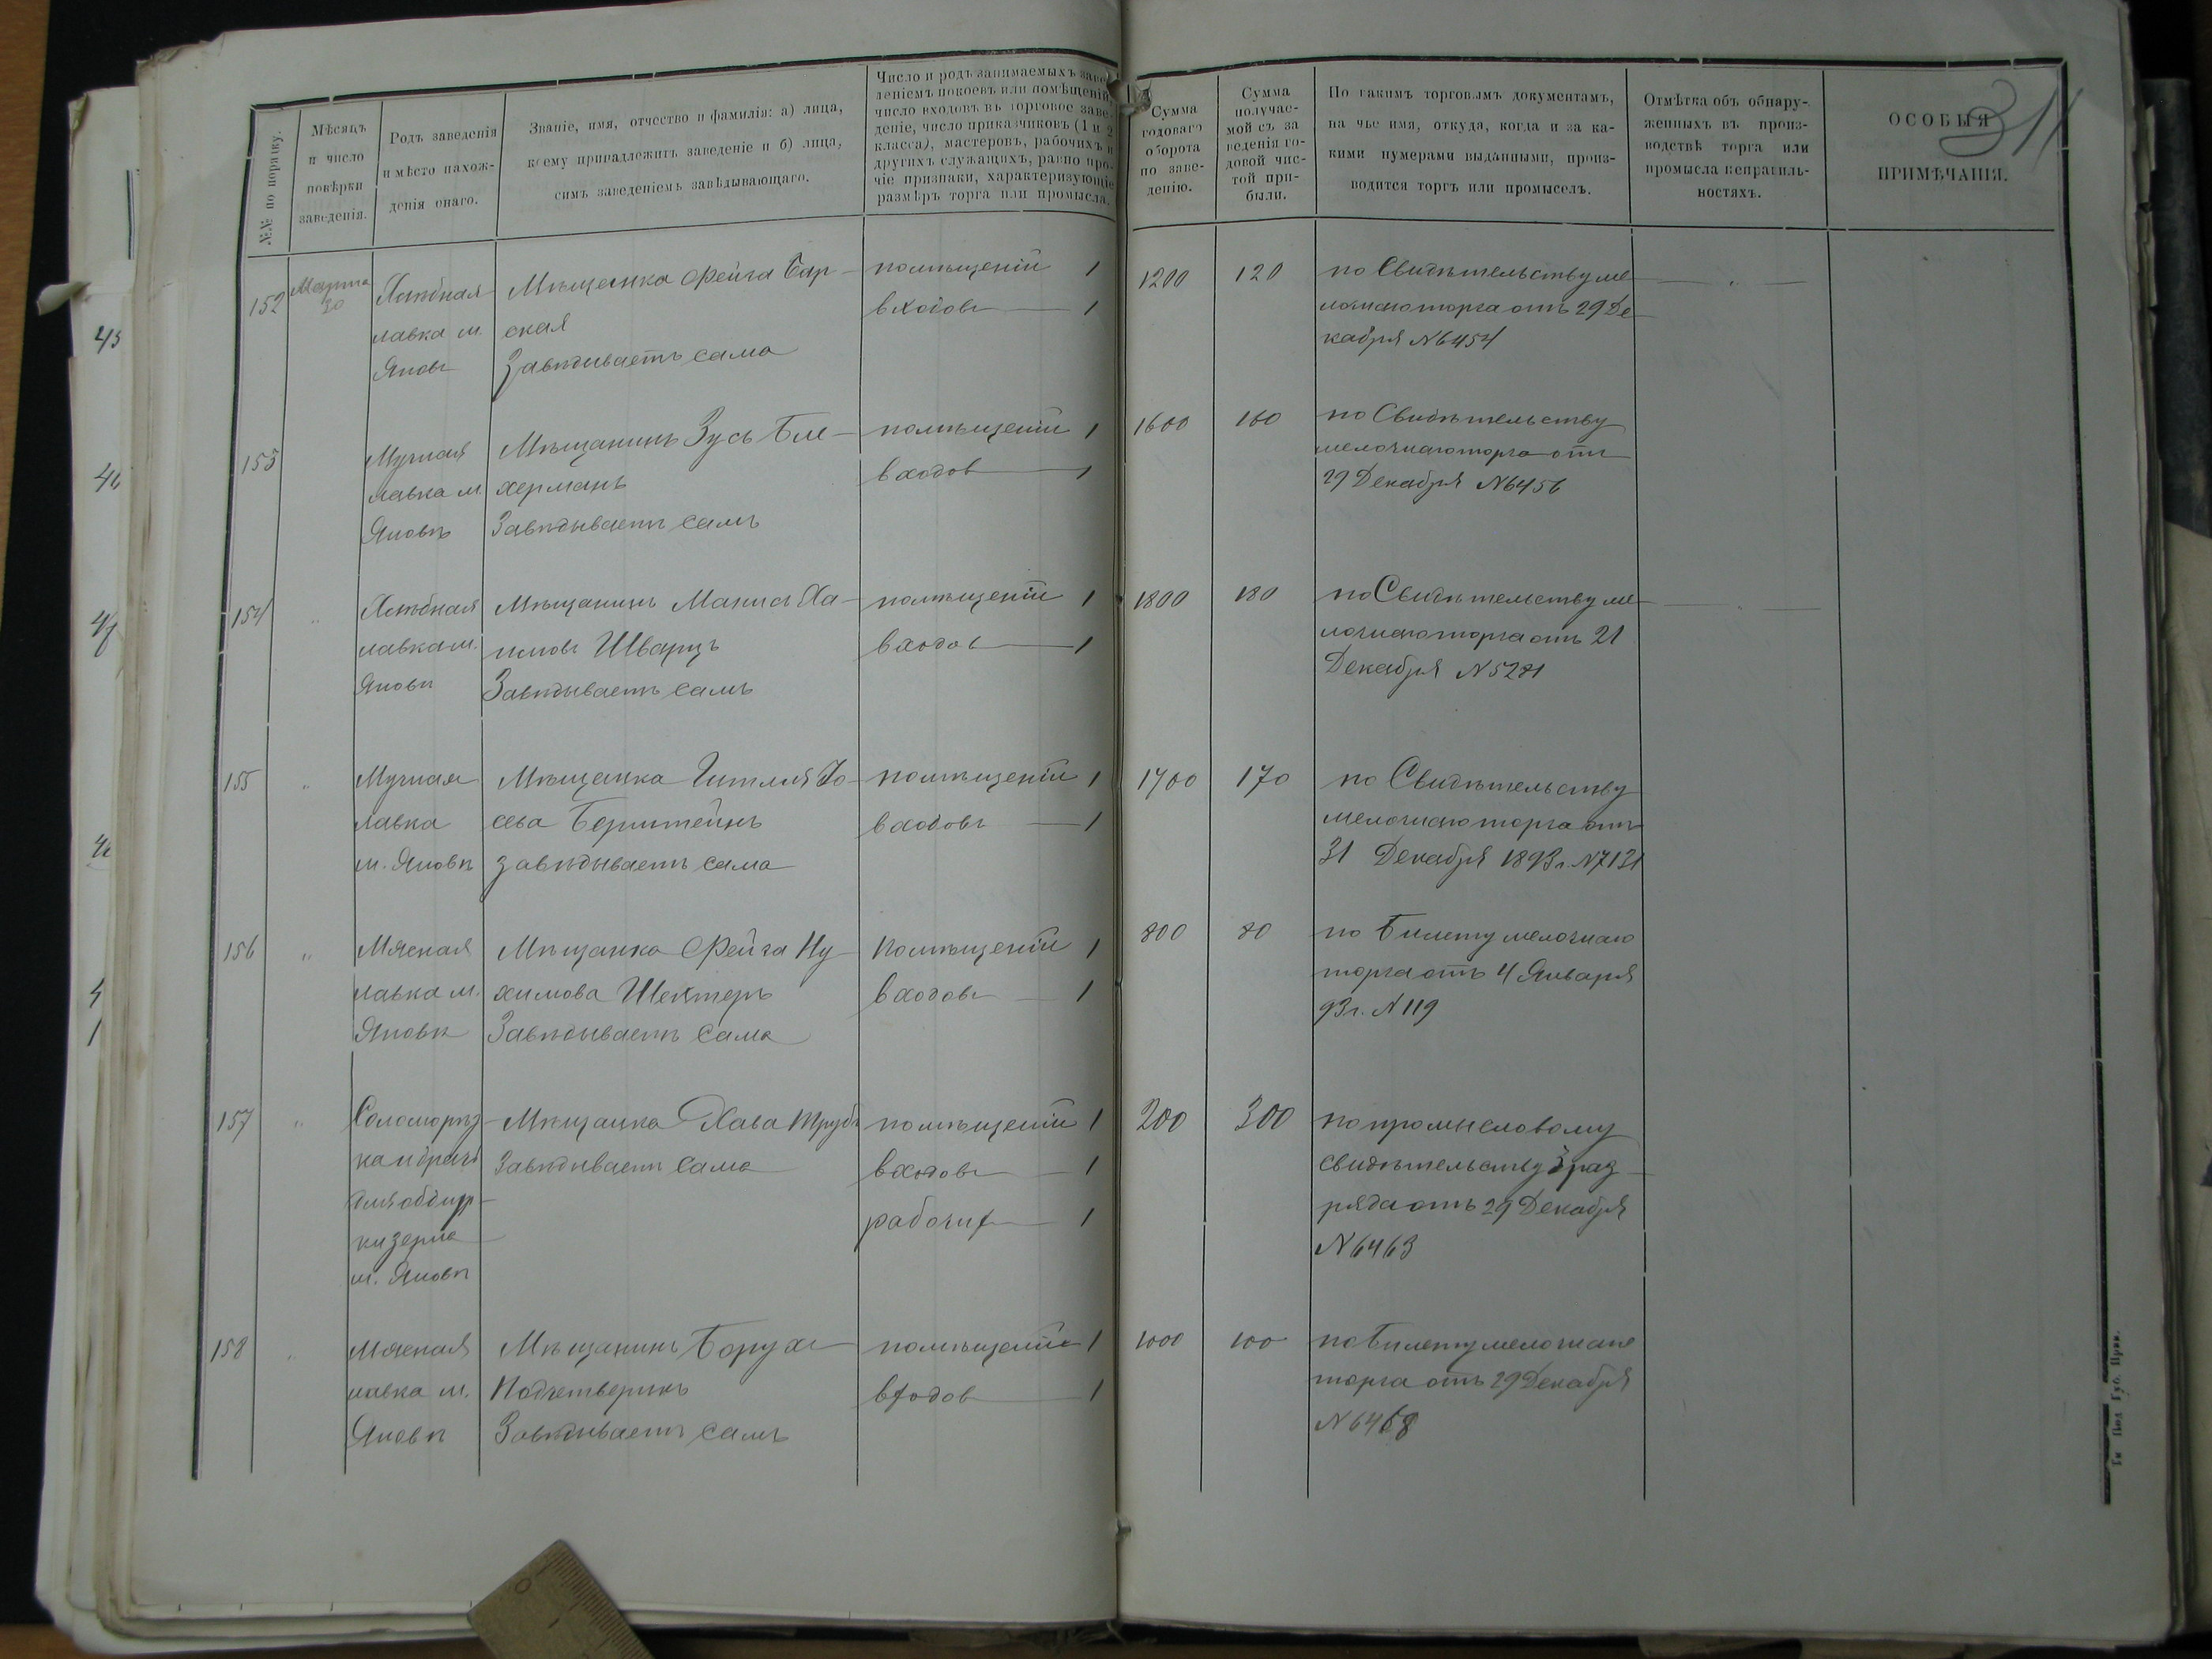 №№ по порядку.
Мѣсяцъ
и число
повѣрки
заведенія.
Родъ заведенія
и мѣсто нахож-
денія онаго.
Званіе, имя, отчество и фамилія: а) лица,
коему принадлежитъ заведеніе и б) лица,
симъ заведеніемъ завѣдывающаго.
Число и родъ занимаемыхъ заве-
деніемъ покоевъ или помѣщеній,
число входовъ въ торговое заве-
деніе, число приказчиковъ (1 и 2
класса), мастеровъ, рабочихъ и
другихъ служащихъ, равно про-
чіе признаки, характеризующіе
размѣръ торга или промысла.
Сумма
годоваго
оборота
по заве-
денію.
Сумма
получае-
мой съ за
веденія го-
довой чис-
той при-
были.
По какимъ торговымъ документамъ,
на чье имя, откуда, когда и за ка-
кими нумерами выданными, произ-
водится торгъ или промыселъ.
Отмѣтка объ обнару-
женныхъ въ произ-
водствѣ торга или
промысла неправиль-
ностяхъ.
ОСОБЫЯ
ПРИМѢЧАНІЯ.
31
152
Марта
30
Хлѣбная
лавка м.
Яновъ
Мѣщанка Фейга Бар-
ская
Завѣдываетъ сама
помѣщеній 1
входовъ — 1
1200
120
по Свидѣтельству ме-
лочнаго торга отъ 29 Де-
кабря N 6454
153
Мучная
лавка м.
Яновѣ
Мѣщанинъ Зусь Бле-
херманъ
Завѣдываетъ самъ
помѣщеній 1
входов — 1
1600
160
по Свидѣтельству
мелочнаго торга отъ
29 Декабря N 6456
154
Хлѣбная
лавка м.
Яновѣ
Мѣщанинъ Манись Ха-
имовъ Шварцъ
Завѣдываетъ самъ
помѣщеній 1
входов — 1
1800
180
по Свидѣтельству ме-
лочнаго торга отъ 21
Декабря N 5281
155
Мучная
лавка
м. Яновѣ
Мѣщанка Гитля Іо-
сева Бернштейнъ
завѣдываетъ сама
помѣщеній 1
входовъ — 1
1700
170
по Свидѣтельству
мелочнаго торга отъ
31 Декабря 1893 г. N 7131
156
Мясная
лавка м.
Яновѣ
Мѣщанка Фейга Ну-
химова Шехтеръ
Завѣдываетъ сама
Помѣщеній 1
входовъ — 1
800
80
по Билету мелочнаго
торга отъ 4 Января
93 г. N 119
157
Соломорѣз-
ка и драчъ
для обдир-
ки зерна
м. Яновѣ
Мѣщанка Хава
Завѣдываетъ сама
помѣщеній 1
входовъ — 1
рабочих — 1
200
300
по промысловому
свидѣтельству 3 раз-
ряда отъ 29 Декабря
N 6463
158
Мясная
лавка м.
Яновѣ
Мѣщанинъ Борухъ
Подчетверикъ
Завѣдываетъ самъ
помѣщеній 1
входов — 1
1000
100
по Билету мелочнаго
торга отъ 29 Декабря
N 6468
Ти Под Губ. Прав.